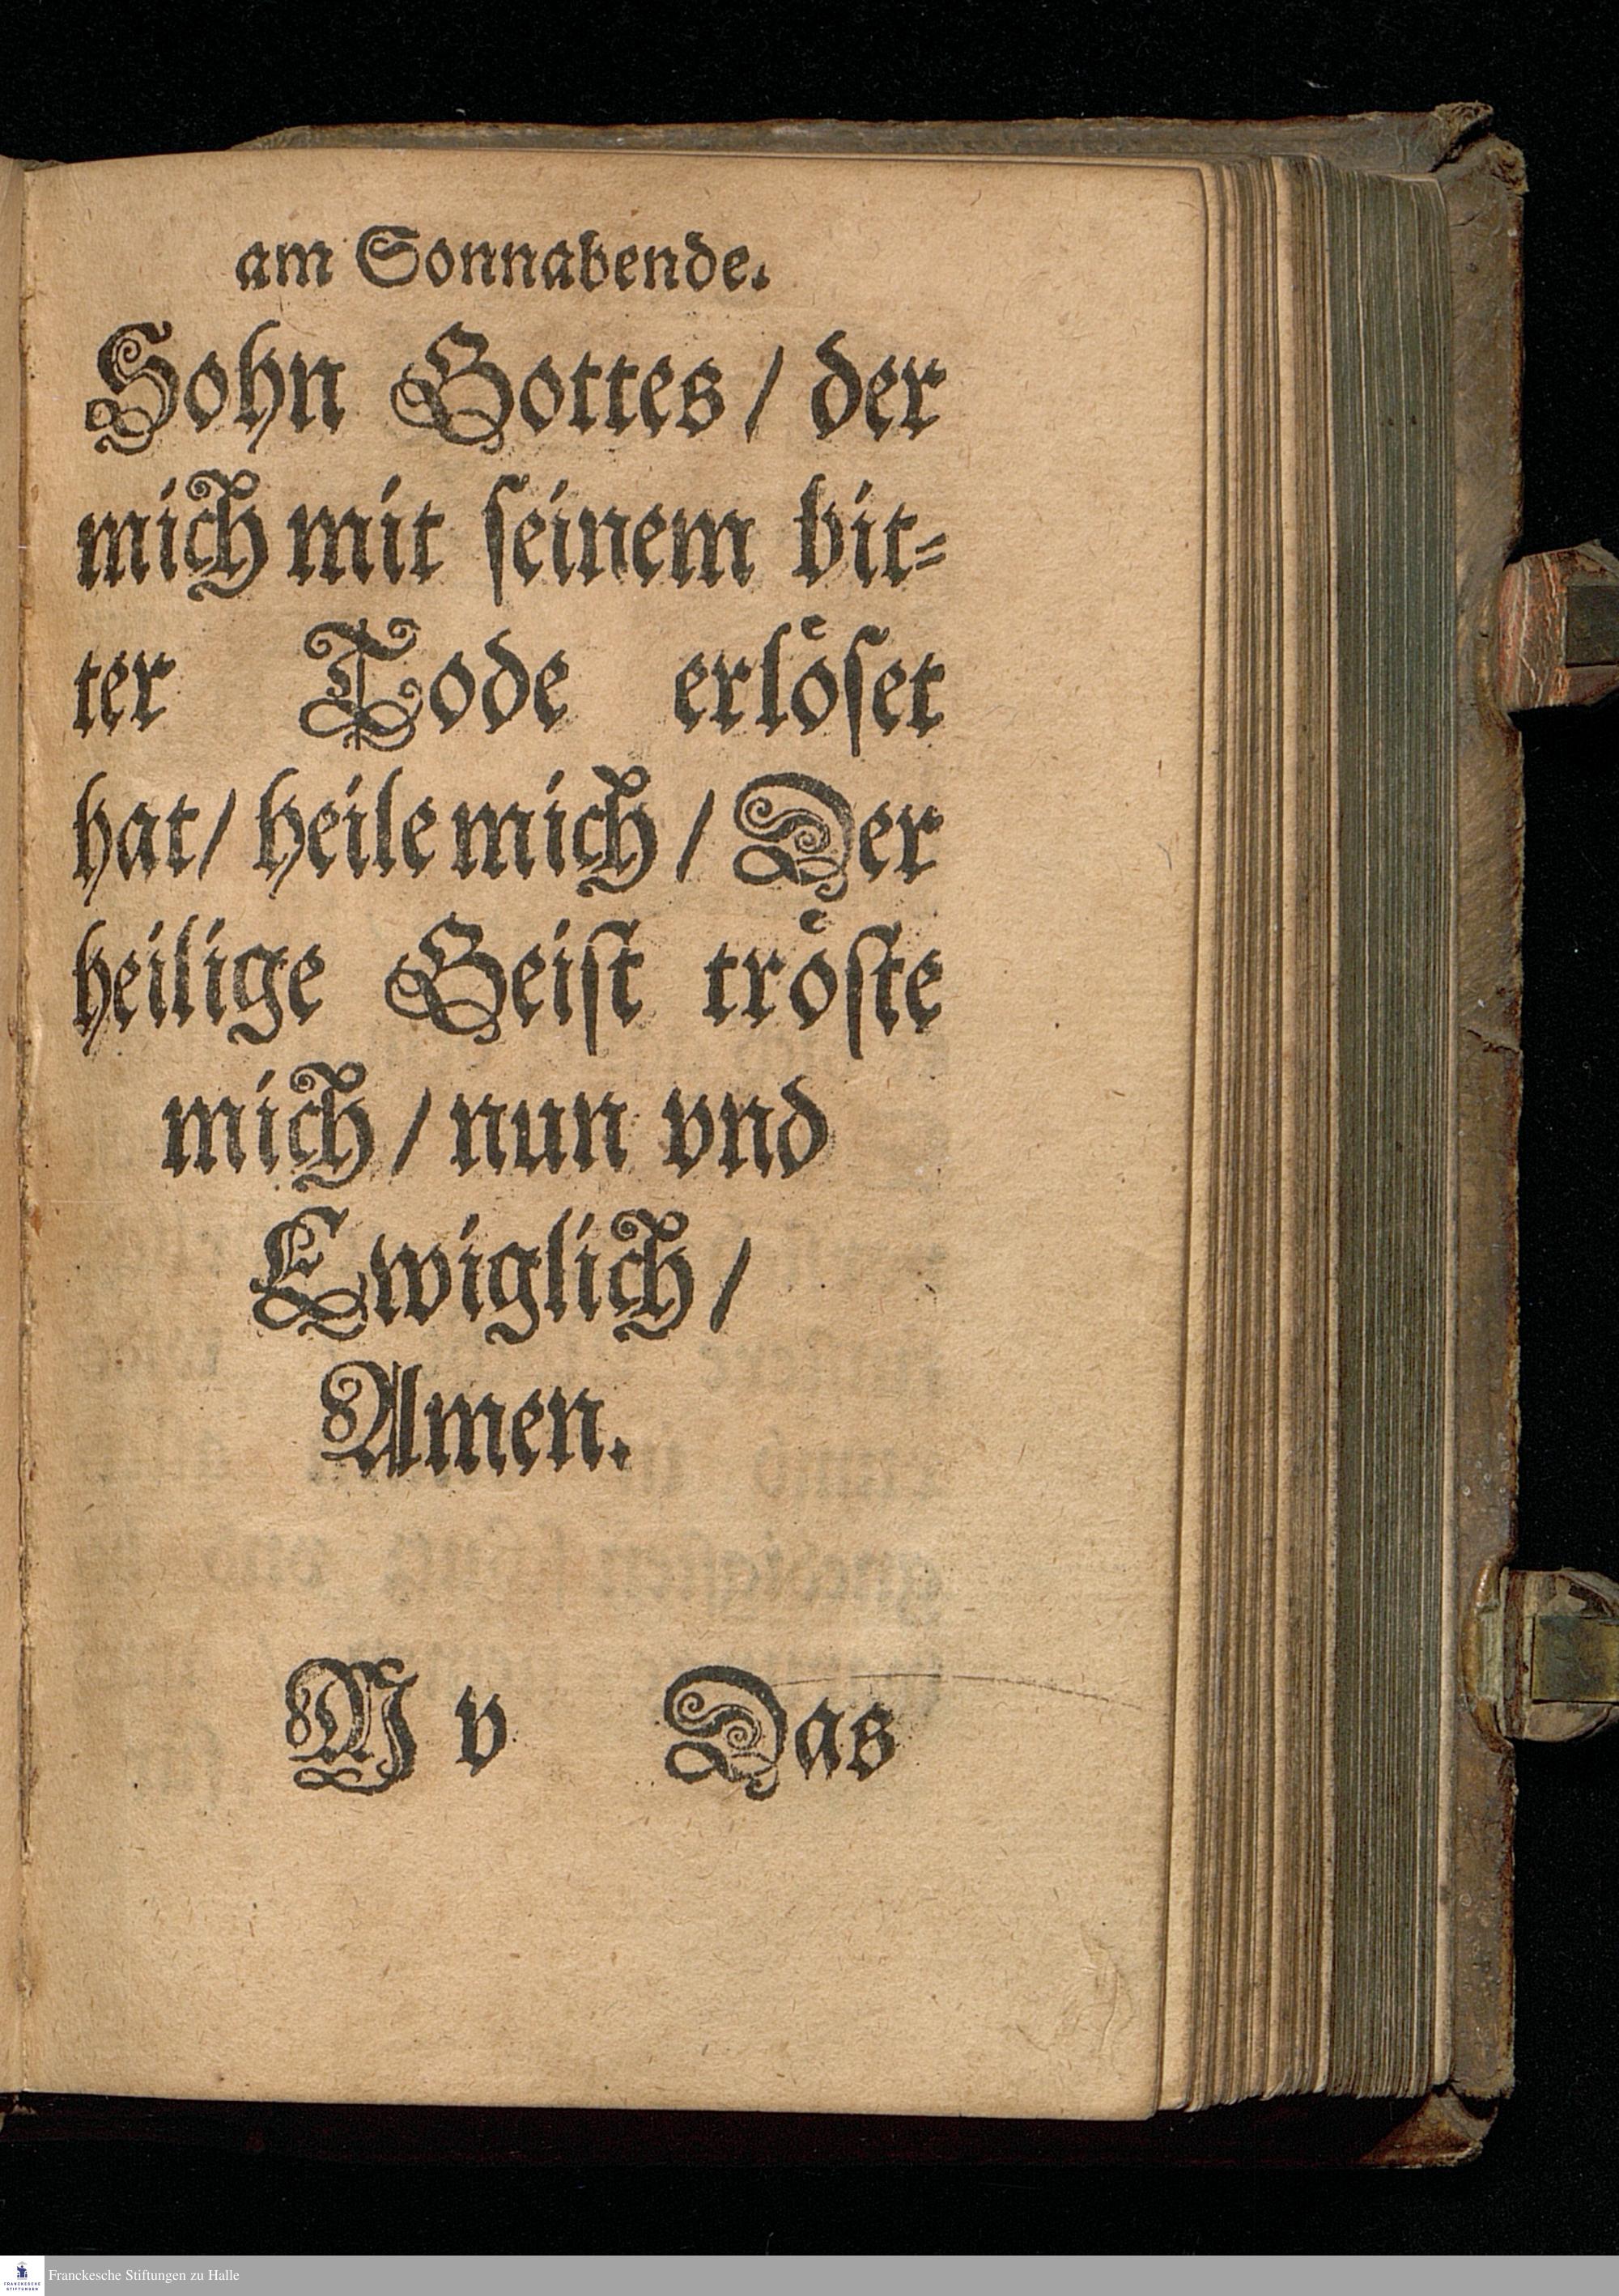 am Sonnabende.
Sohn Gottes / der
mich mit ſeinem bit⸗
ter Tode erloͤſet
hat / heile mich / Der
heilige Geiſt troͤſte
mich / nun vnd
Ewiglich /
Amen.
M v Das
FRANCKESCHE STIFTUNGEN
Franckesche Stiftungen zu Halle